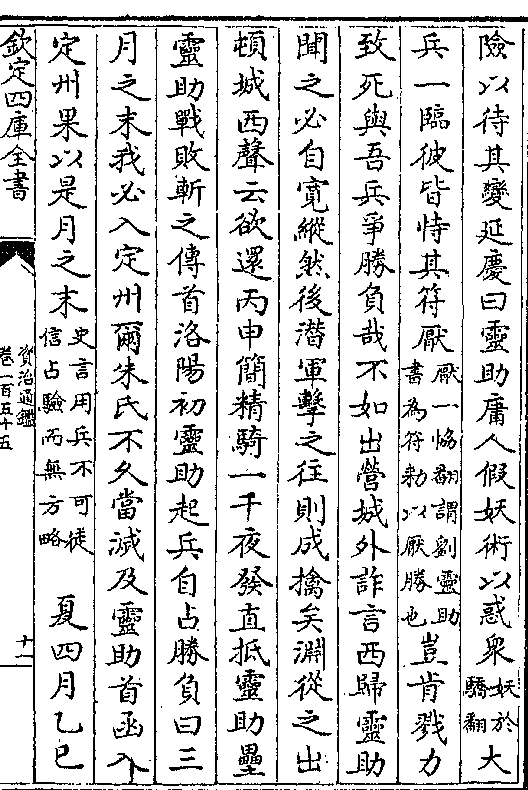 險以待其變延慶曰靈助庸人假妖術以惑衆妖於驕翻大
兵一臨彼皆恃其符厭厭一恊翻謂劉靈助書為符勑以厭勝也豈肯戮力
致死與吾兵爭勝負哉不如出營城外詐言西歸靈助
聞之必自寛縱然後潜軍擊之往則成擒矣淵從之出
頓城西聲云欲還丙申簡精騎一千夜發直抵靈助壘
靈助戰敗斬之傳首洛陽初靈助起兵自占勝負曰三
月之末我必入定州爾朱氏不久當滅及靈助首函入
定州果以是月之末史言用兵不可徒信占驗而無方略夏四月乙巳
欽定四庫全書
資治通鑑
卷一百五十五
十一